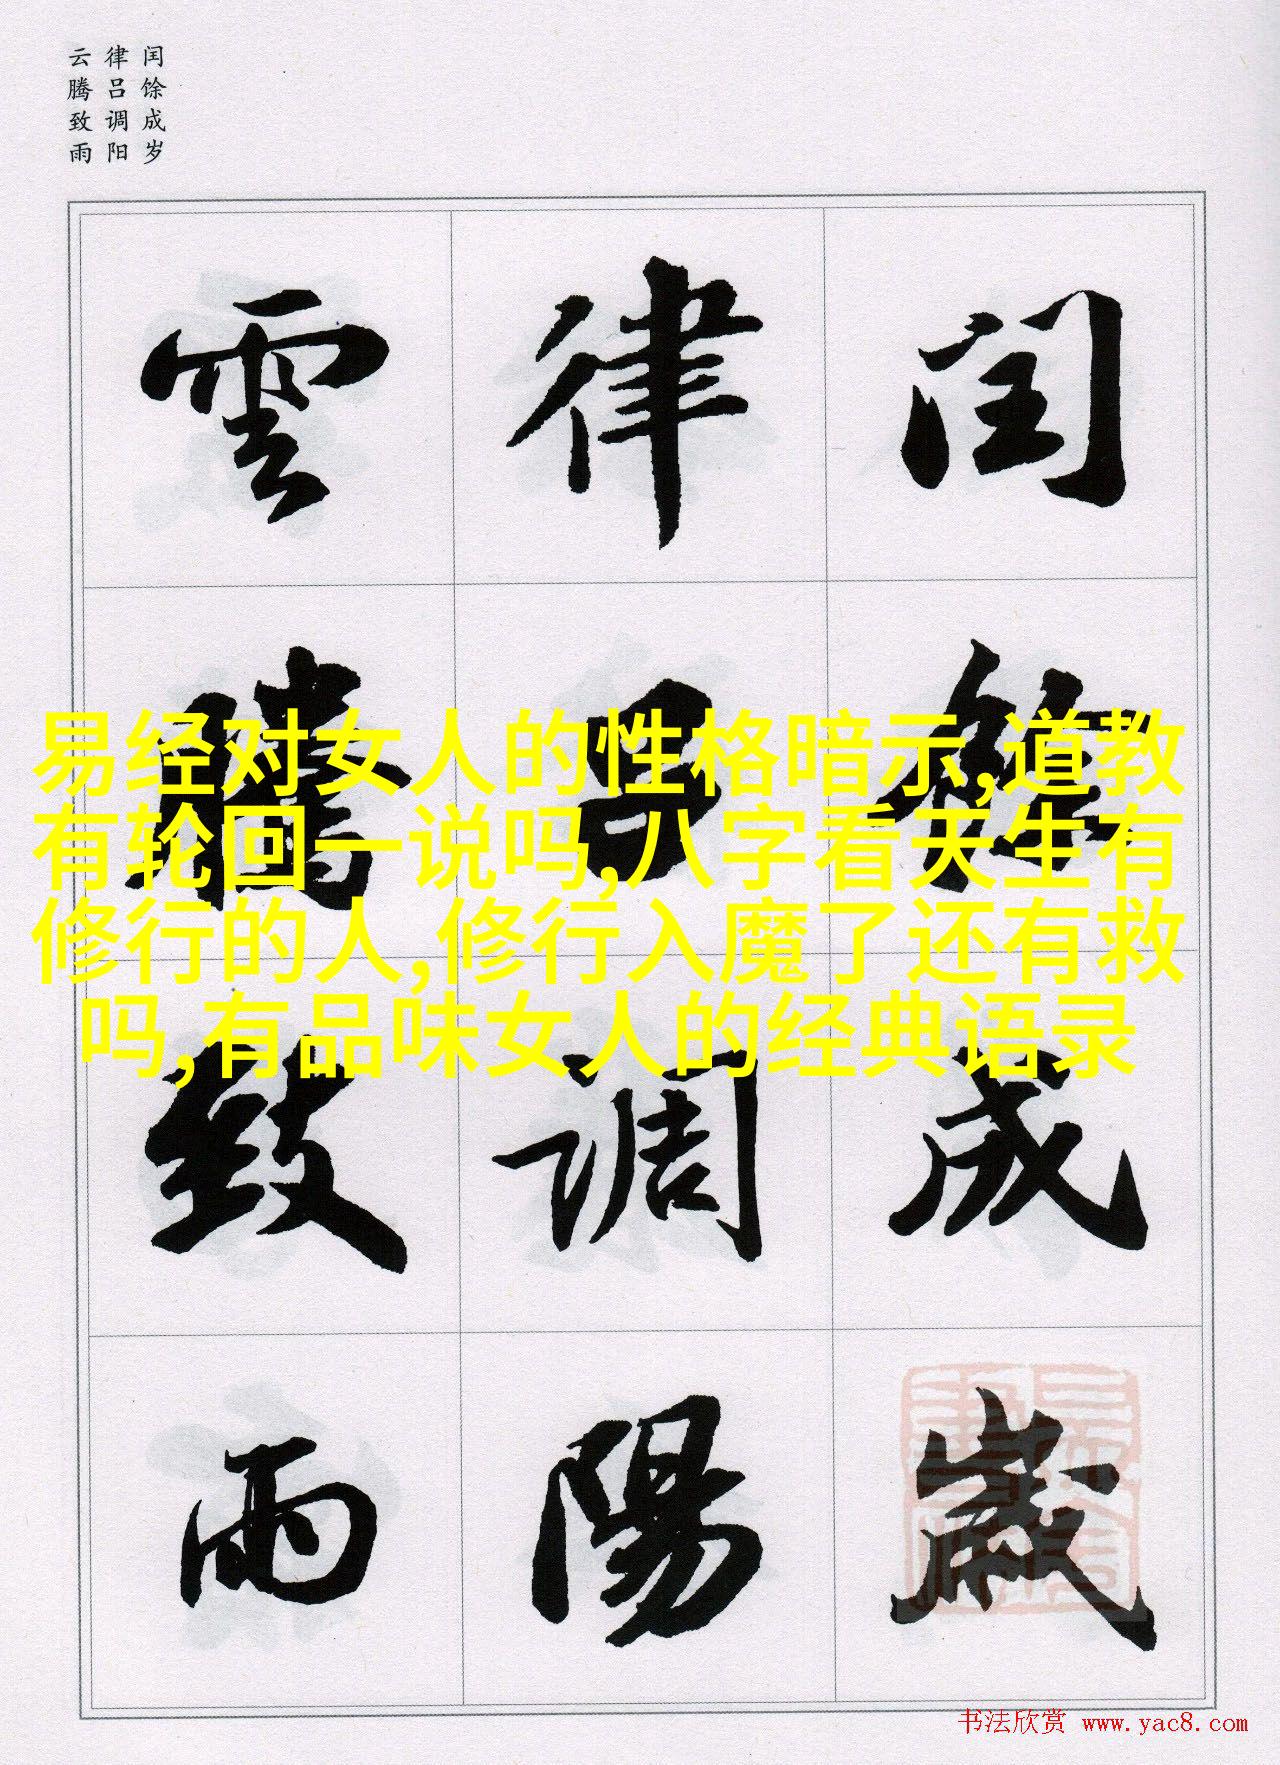 闰馀成岁
律吕调阳
云腾致雨
閏餘成歲
律吕調陽
雲騰致雨
易经对女人的性格暗示,道教
有轮回一说吗,八字看天生有
修行的人,修行入魔了还有救
吗,有品味女人的经典语录
书法欣赏 www.yac8.com